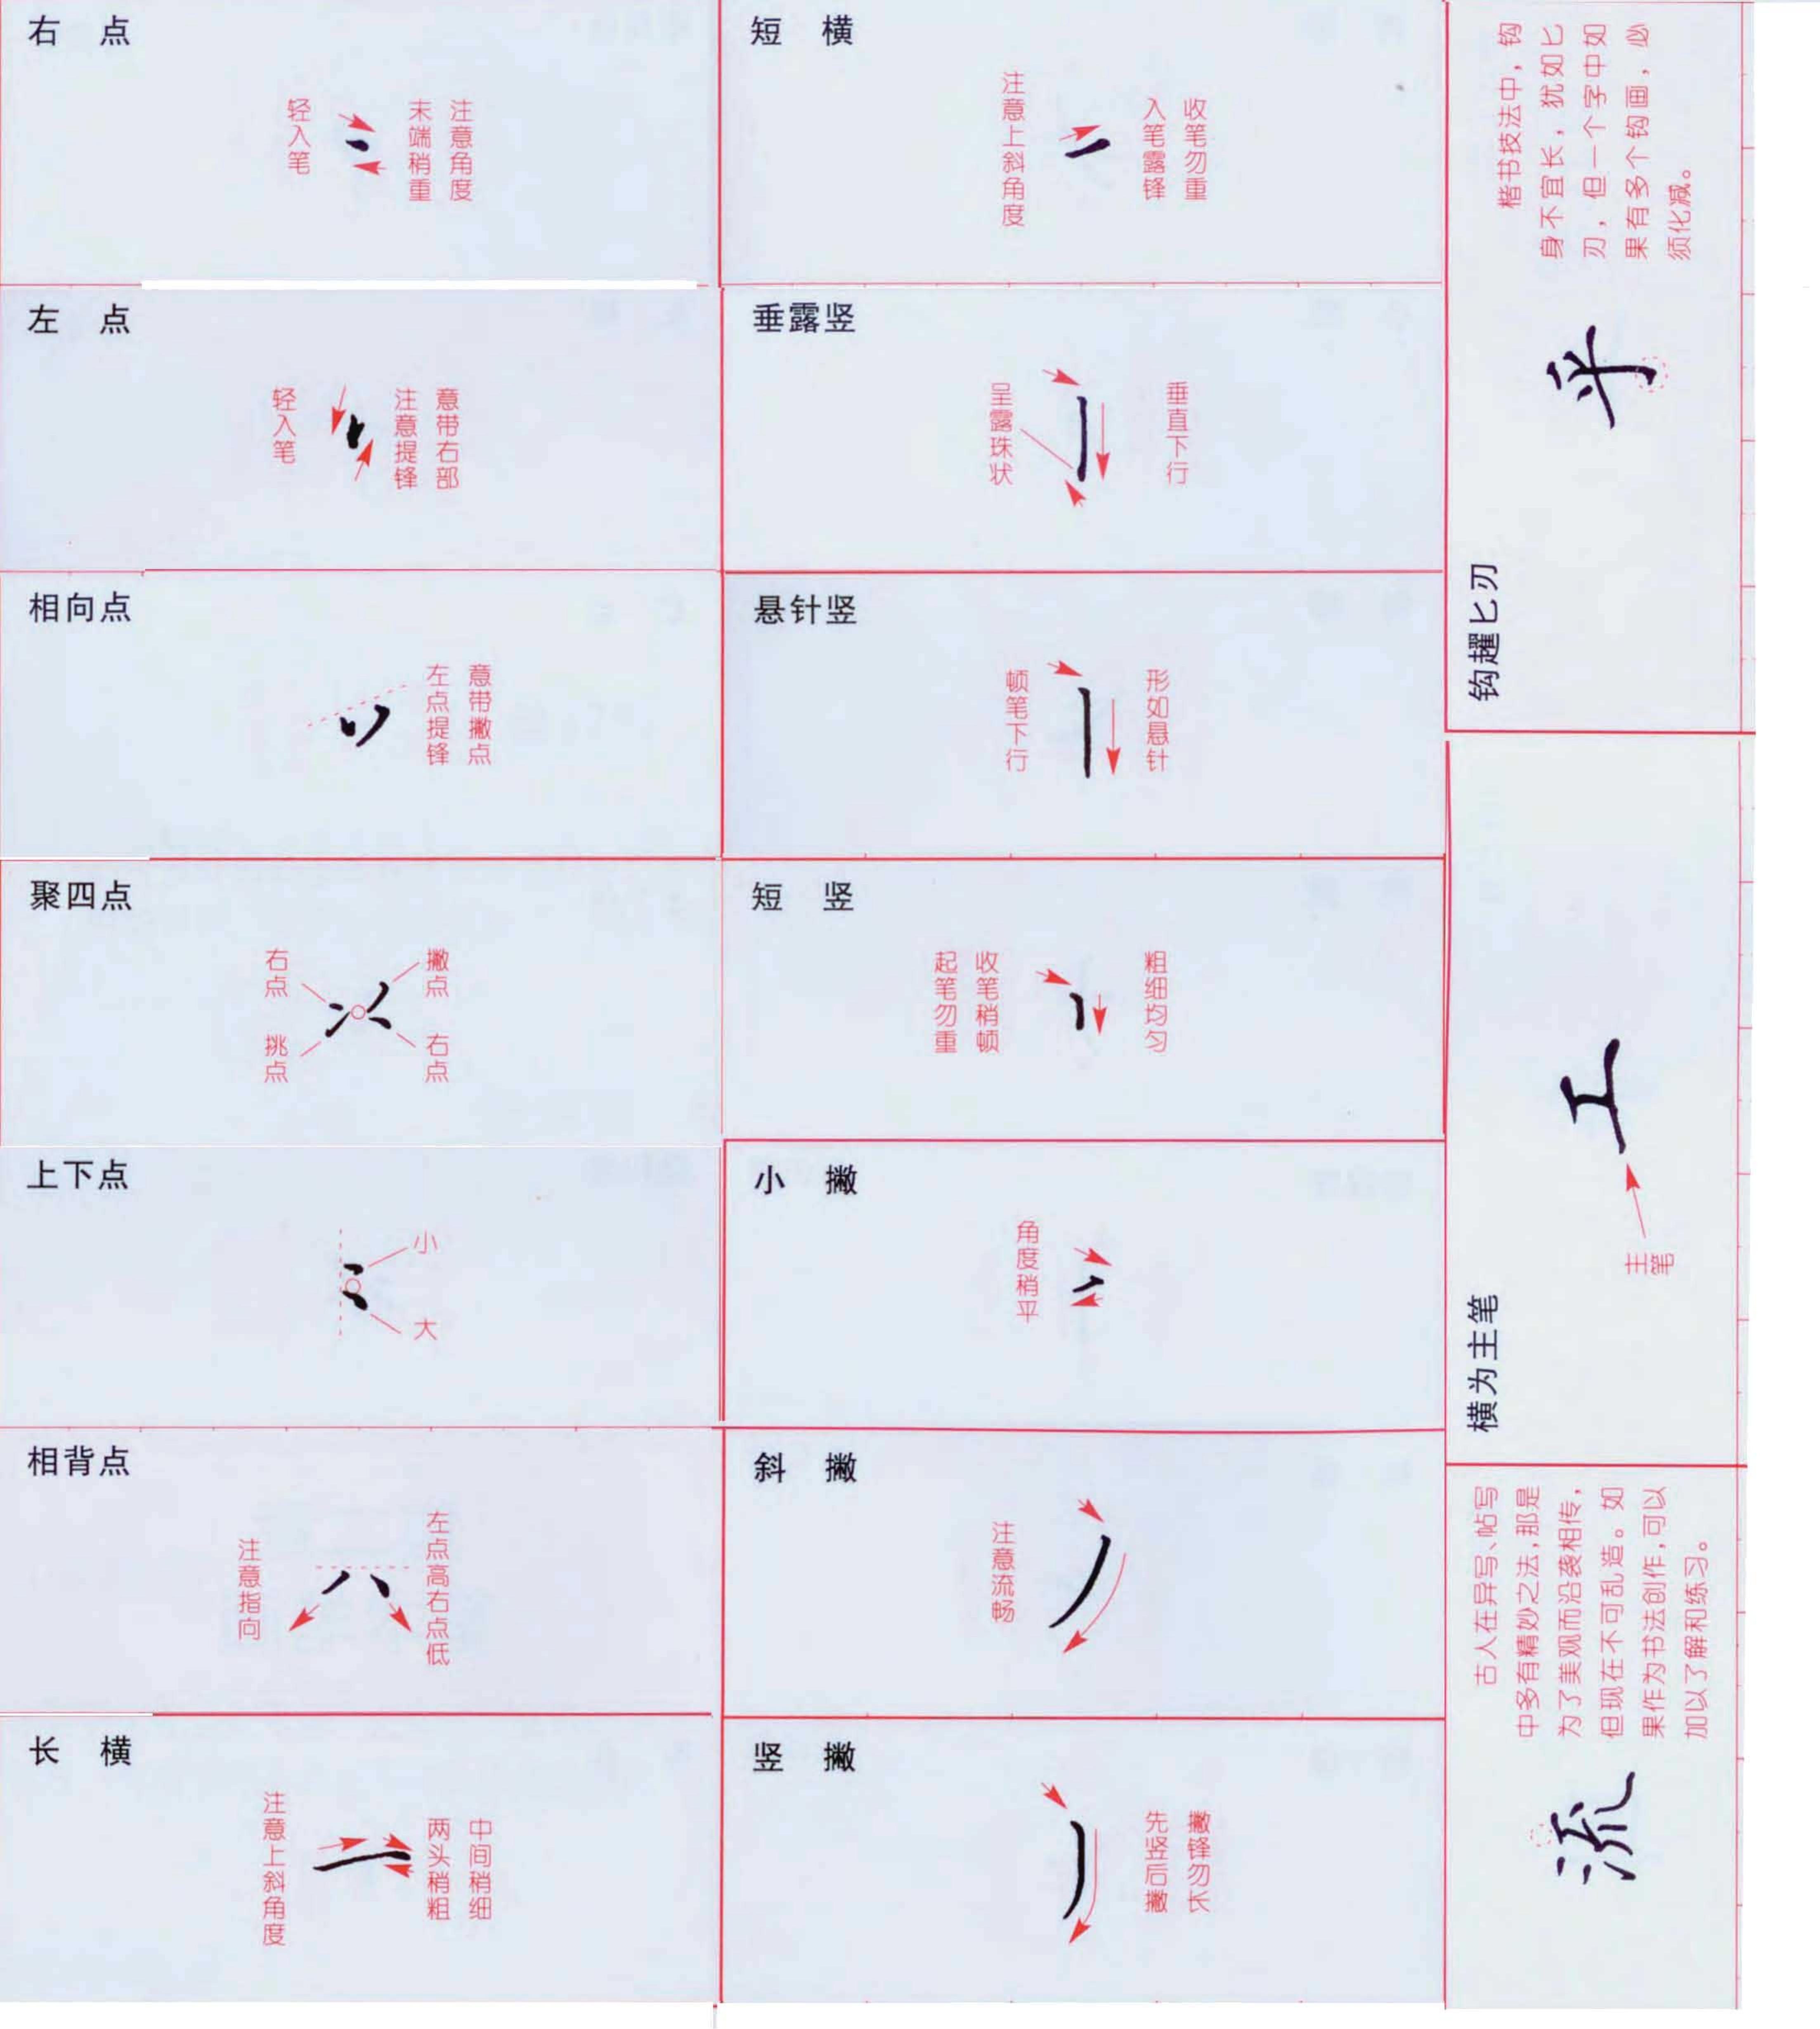 右 点
轻入笔
末端稍重
注意角度
左 点
轻入笔
注意提锋
意带右部
相向点
左点提锋
意带撇点
聚四点
右点
撇点
挑点
右点
上下点
小
大
相背点
注意指向
左点高右点低
长 横
注意上斜角度
两头稍粗
中间稍细
短 横
注意上斜角度
入笔露锋
收笔勿重
垂露竖
呈露珠状
垂直下行
悬针竖
顿笔下行
形如悬针
短 竖
起笔勿重
收笔稍顿
粗细均匀
小 撇
角度稍平
斜 撇
注意流畅
竖 撇
先竖后撇
撇锋勿长
钩趯匕刃
乎
楷书技法中，钩
身不宜长，犹如匕
刃，但一个字中如
果有多个钩画，必
须化减。
横为主笔
主笔
工
流
古人在异写、帖写
中多有精妙之法，那是
为了美观而沿袭相传，
但现在不可乱造。如
果作为书法创作，可以
加以了解和练习。